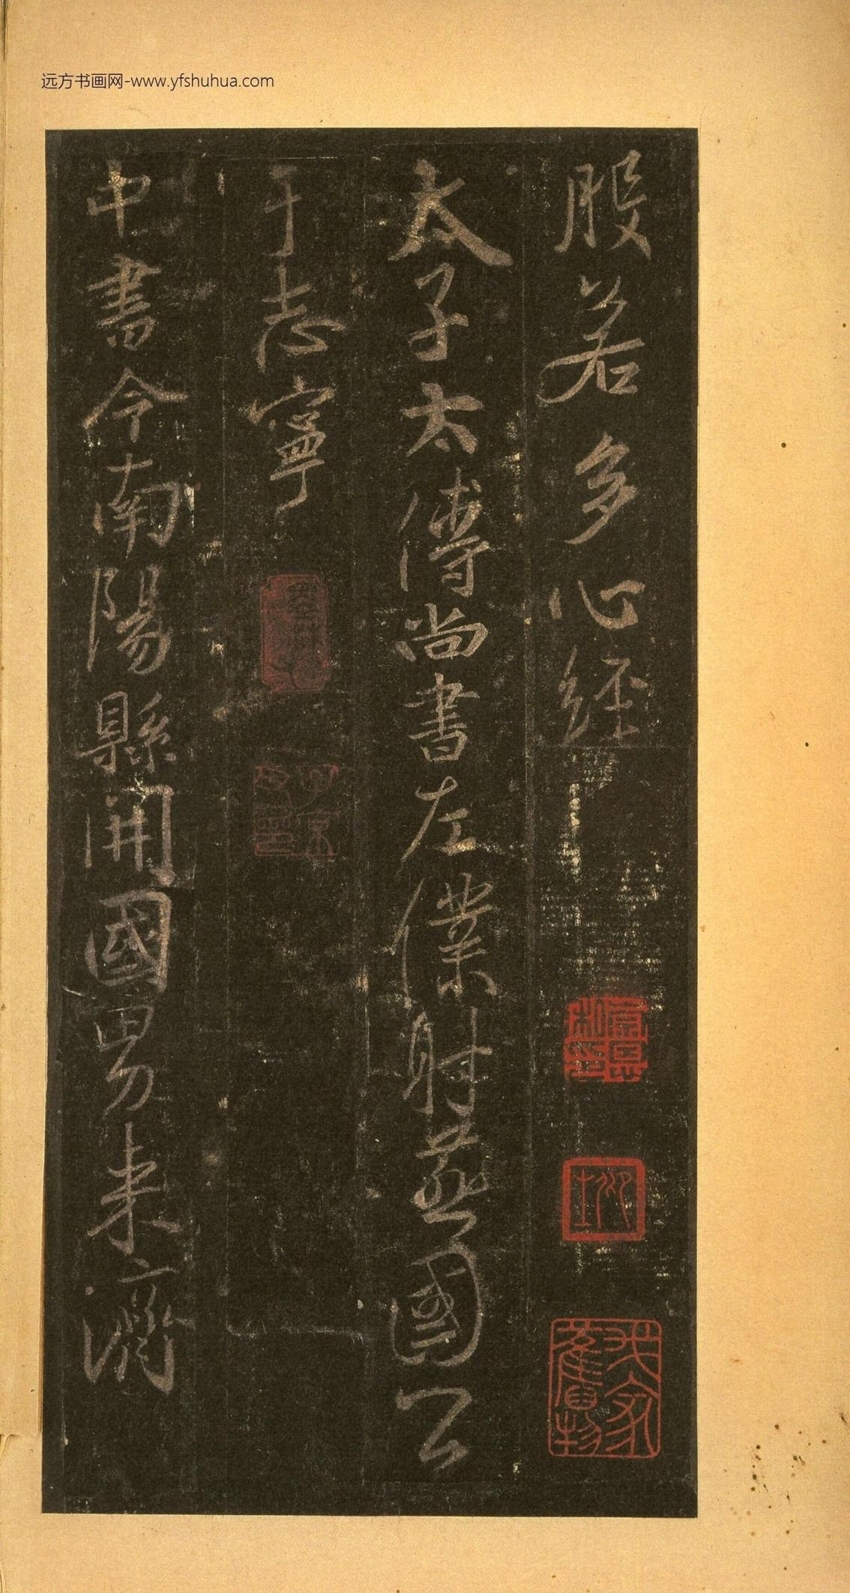 远方书画网-www.yfshuhua.com
般若多心經
太子太傅尚書左僕射燕國公
于志寧
中書令南陽縣開國男來濟